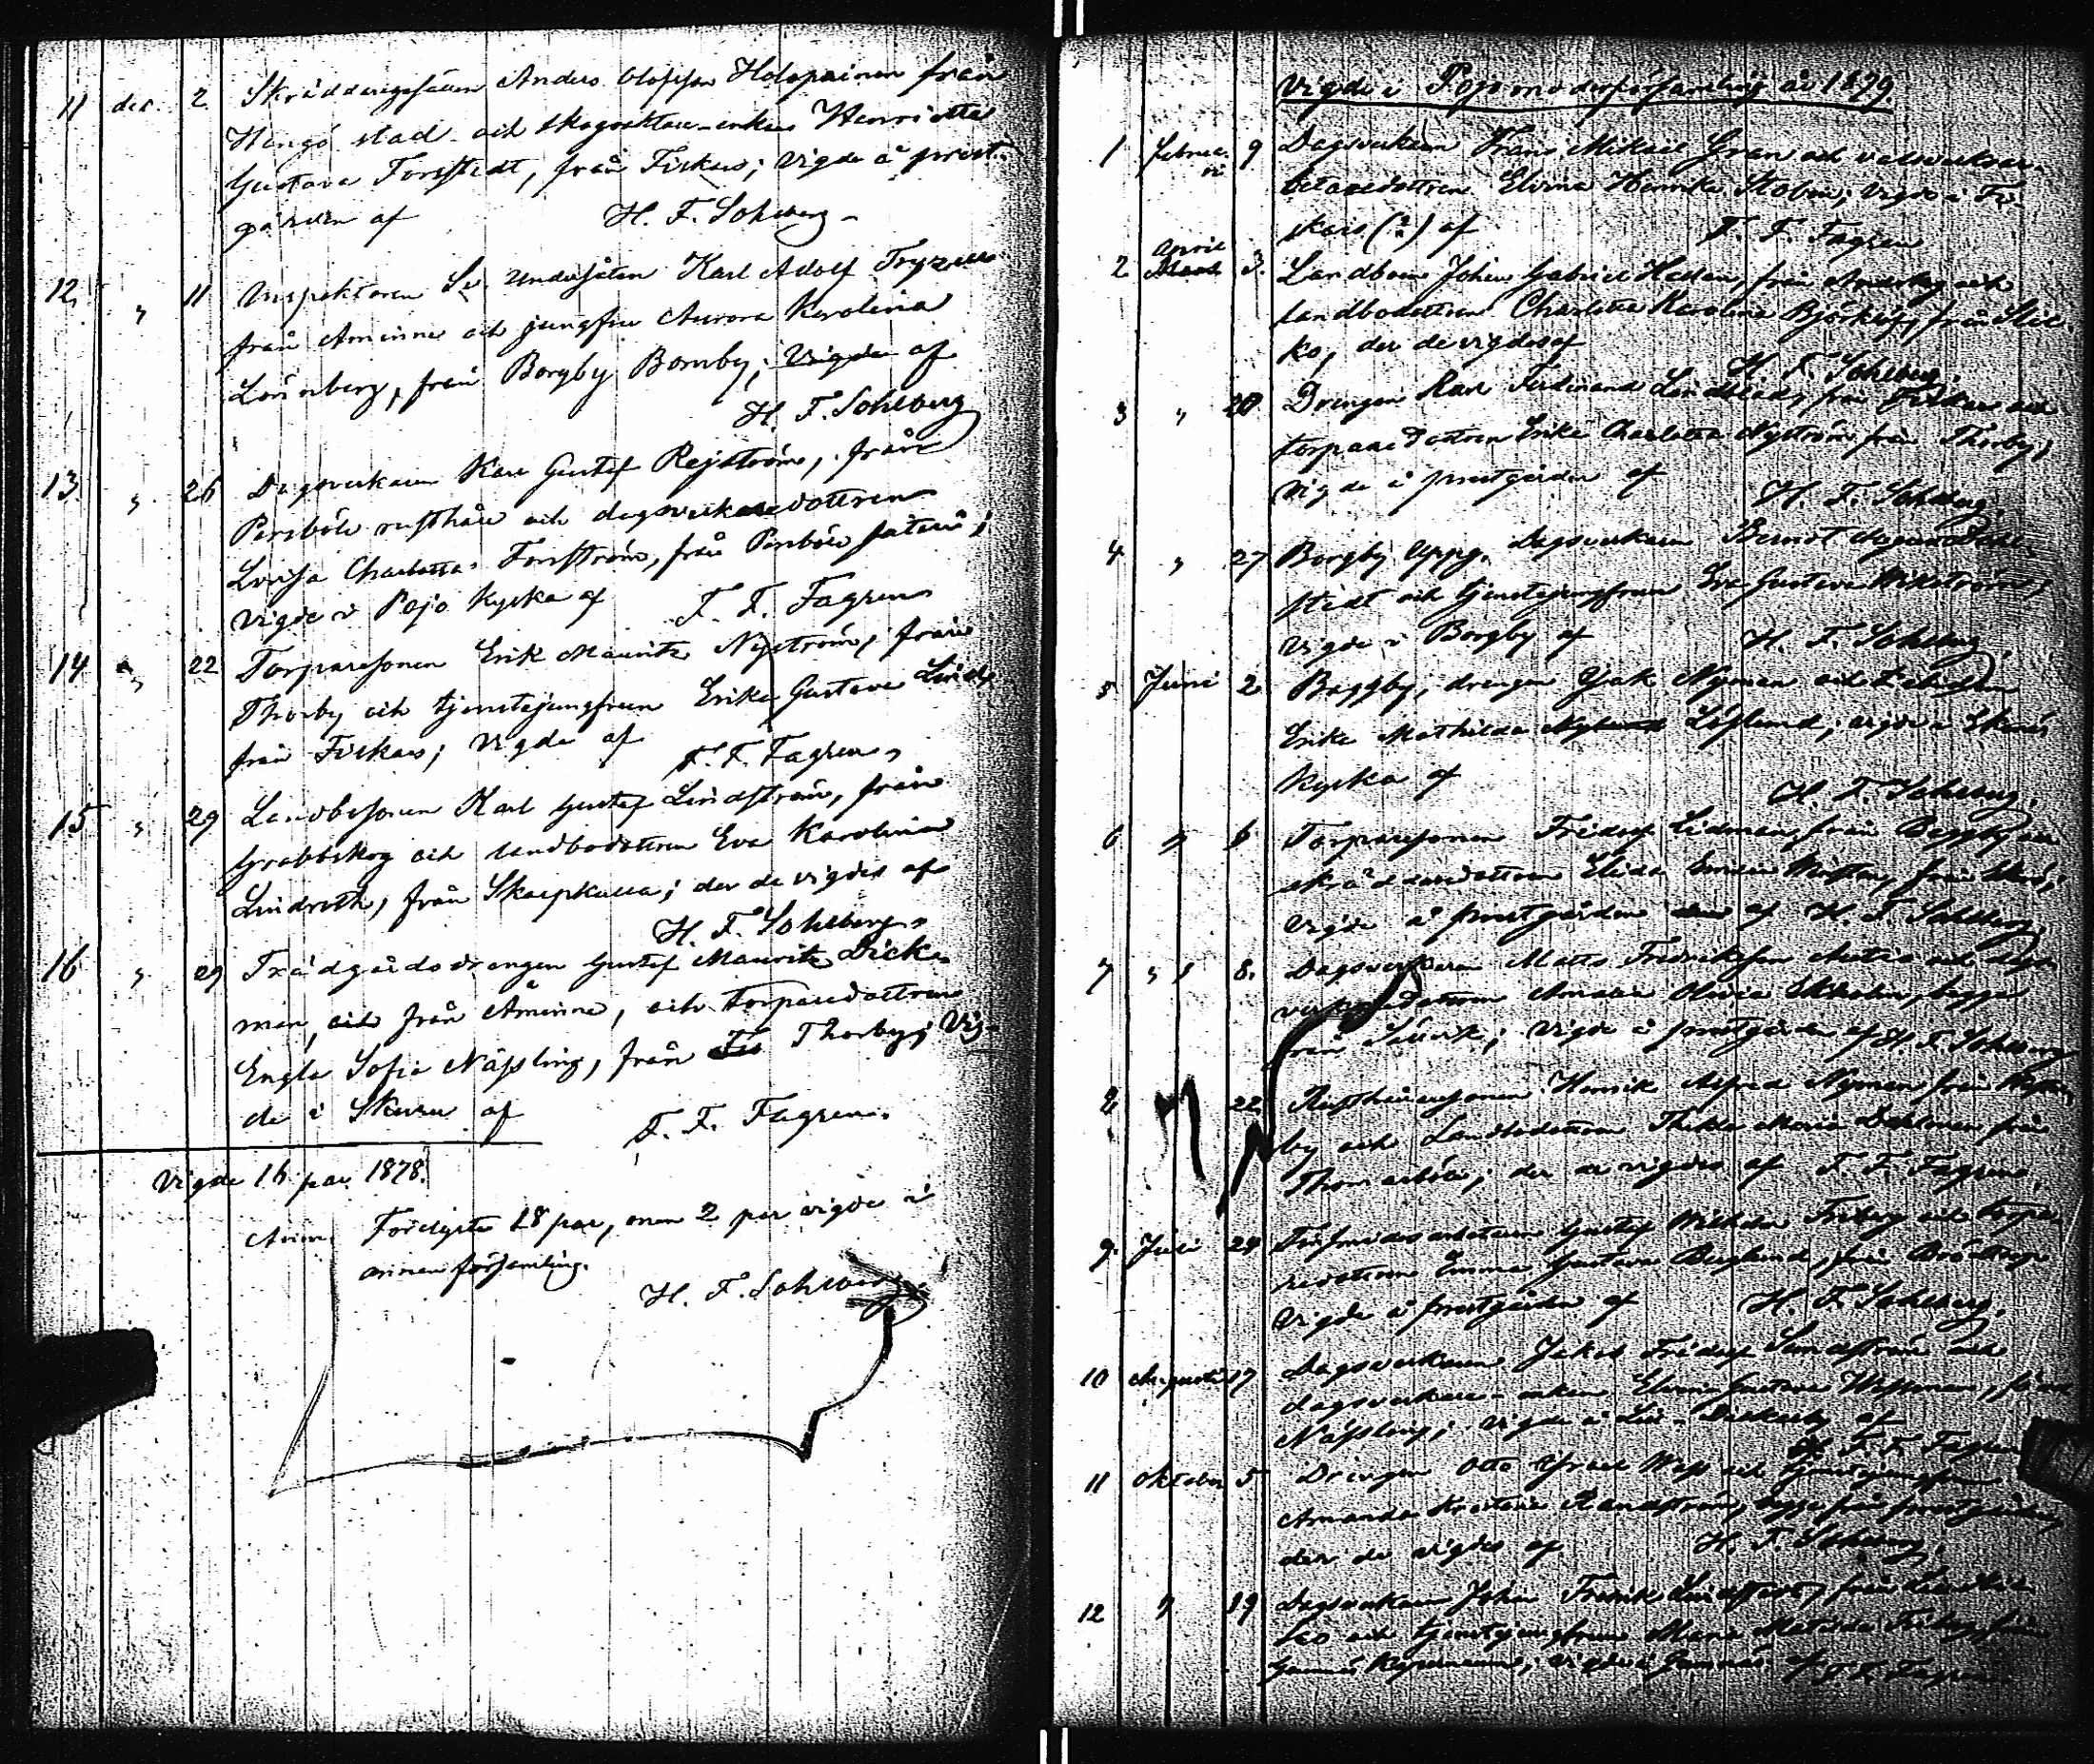 11 dec. 2 Skräddaregesällen Anders Olofsson Holopainen från
Hangö stad och skogvaktare-enkan Henrietta
Gustava Forsstedt, från Fiskars; vigde å prest-
gården af H. F. Sohlberg
12 " 11 Inspektoren Sv. Undersåten Karl Adolf
från Åminne och jungfru Aurora Karolina
Lönnberg, från Borgby Bomby; Vigde af
H. F. Sohlberg
13 " 26 Dagsverkaren Karl Gustaf Rejström, från
Persböle rusthåll och dagsverkaredottren
Lovisa Charlotta Forsström, från Persböle säteri;
vigde i Pojo kyrka af F. F. Fagren
14 " 22 Torparesonen Erik Mauritz Nyström, från
Thorby och tjenstejungfrun Erika Gustava Lind
från Fiskars; vigde af
F. F. Fagren
15 " 29 Landbosonen Karl Gustaf Lindström, från
Grabbskog och landbodottren Eva Karolina
Lindroth, från Skarpkulla; der de vigdes af
H. F. Sohlberg
16 " 29 Trädgårdsdrengen Gustaf Mauritz Dick-
man, och från Åminne, och torparedottren
Engla Sofia Nässling, från Fis Thorby; Vig-
de i Skuru af
F. F. Fagren.
Vigde 16 par 1878.
Anm. Förelyste 18 par, men 2 par vigde i
annan församling.
H. F. Sohlberg
Vigde i Pojo moderförsamling år 1879.
1 Februa-ri 9 Dagsverkaren Frans Mikael Gran och valsverksar-
betaredottren Elvina Henrika Holm; vigde i Fi-
skars af F. F. Fagren
2 April Mars 3. Landbon Johan Gabriel Hedman, från och
landbodottren Charlotta Karolina Björklöf, från
ko, der de vigdes af
H. F. Sohlberg.
3 " 20 Drengen Karl Ferdinand Lindblad, från Fiskars och
torparedottren Erika Charlotta Nyström från Thorby;
vigde å prestgården af
H. F. Sohlberg.
4 " 27 Borgby Uppg. Dagsverkaren Bernt
stedt och tjenstejungfrun Eva Gustava Wikström;
vigde i Borgby af H. F. Sohlberg.
5 Juni 2 Baggby, drengen Isak Nyman och
Erika Mathilda Löflund; vigde i Ekenäs
kyrka af
H. F. Sohlberg.
6 " 6 Torparesonen Fridolf Lidman, från Baggby och
skräddaredottren Elida Emilia från
vigde å prestgården af H. F. Sohlberg.
7 " 8. Dagsverkaren Matts Fredriksson och dags-
verkaredottren Amanda Ekholm, begge
från vigde å prestgården af H. F. Sohlberg
8 22 Rusthållaresonen Henrik Alfred Nyman från
by och Landbodottren Thilda Maria Dahlman från
Thomasböle; der de vigdes af F. F. Fagren.
9. Juli 29 Gustaf Wilhelm Friberg och torpa-
redottren Emma Gustava Berglund, från
vigde å prestgården af H. F. Sohlberg.
10 Augusti 17 Dagsverkaren Jakob Fridolf Sundström och
dagsverkare-enkan Gustava född
Nässling; vigde i af
F. F. Fagren
11 Oktober 5 Drengen Otto och tjenstejungfrun
Amanda Kristina Randström, begge från prestgården
der de vigdes af H. F. Sohlberg.
12 " 19 Dagsverkaren Johan Fredrik från
och tjenstejungfrun Maria Matilda från
vigde i af F. F. Fagren.